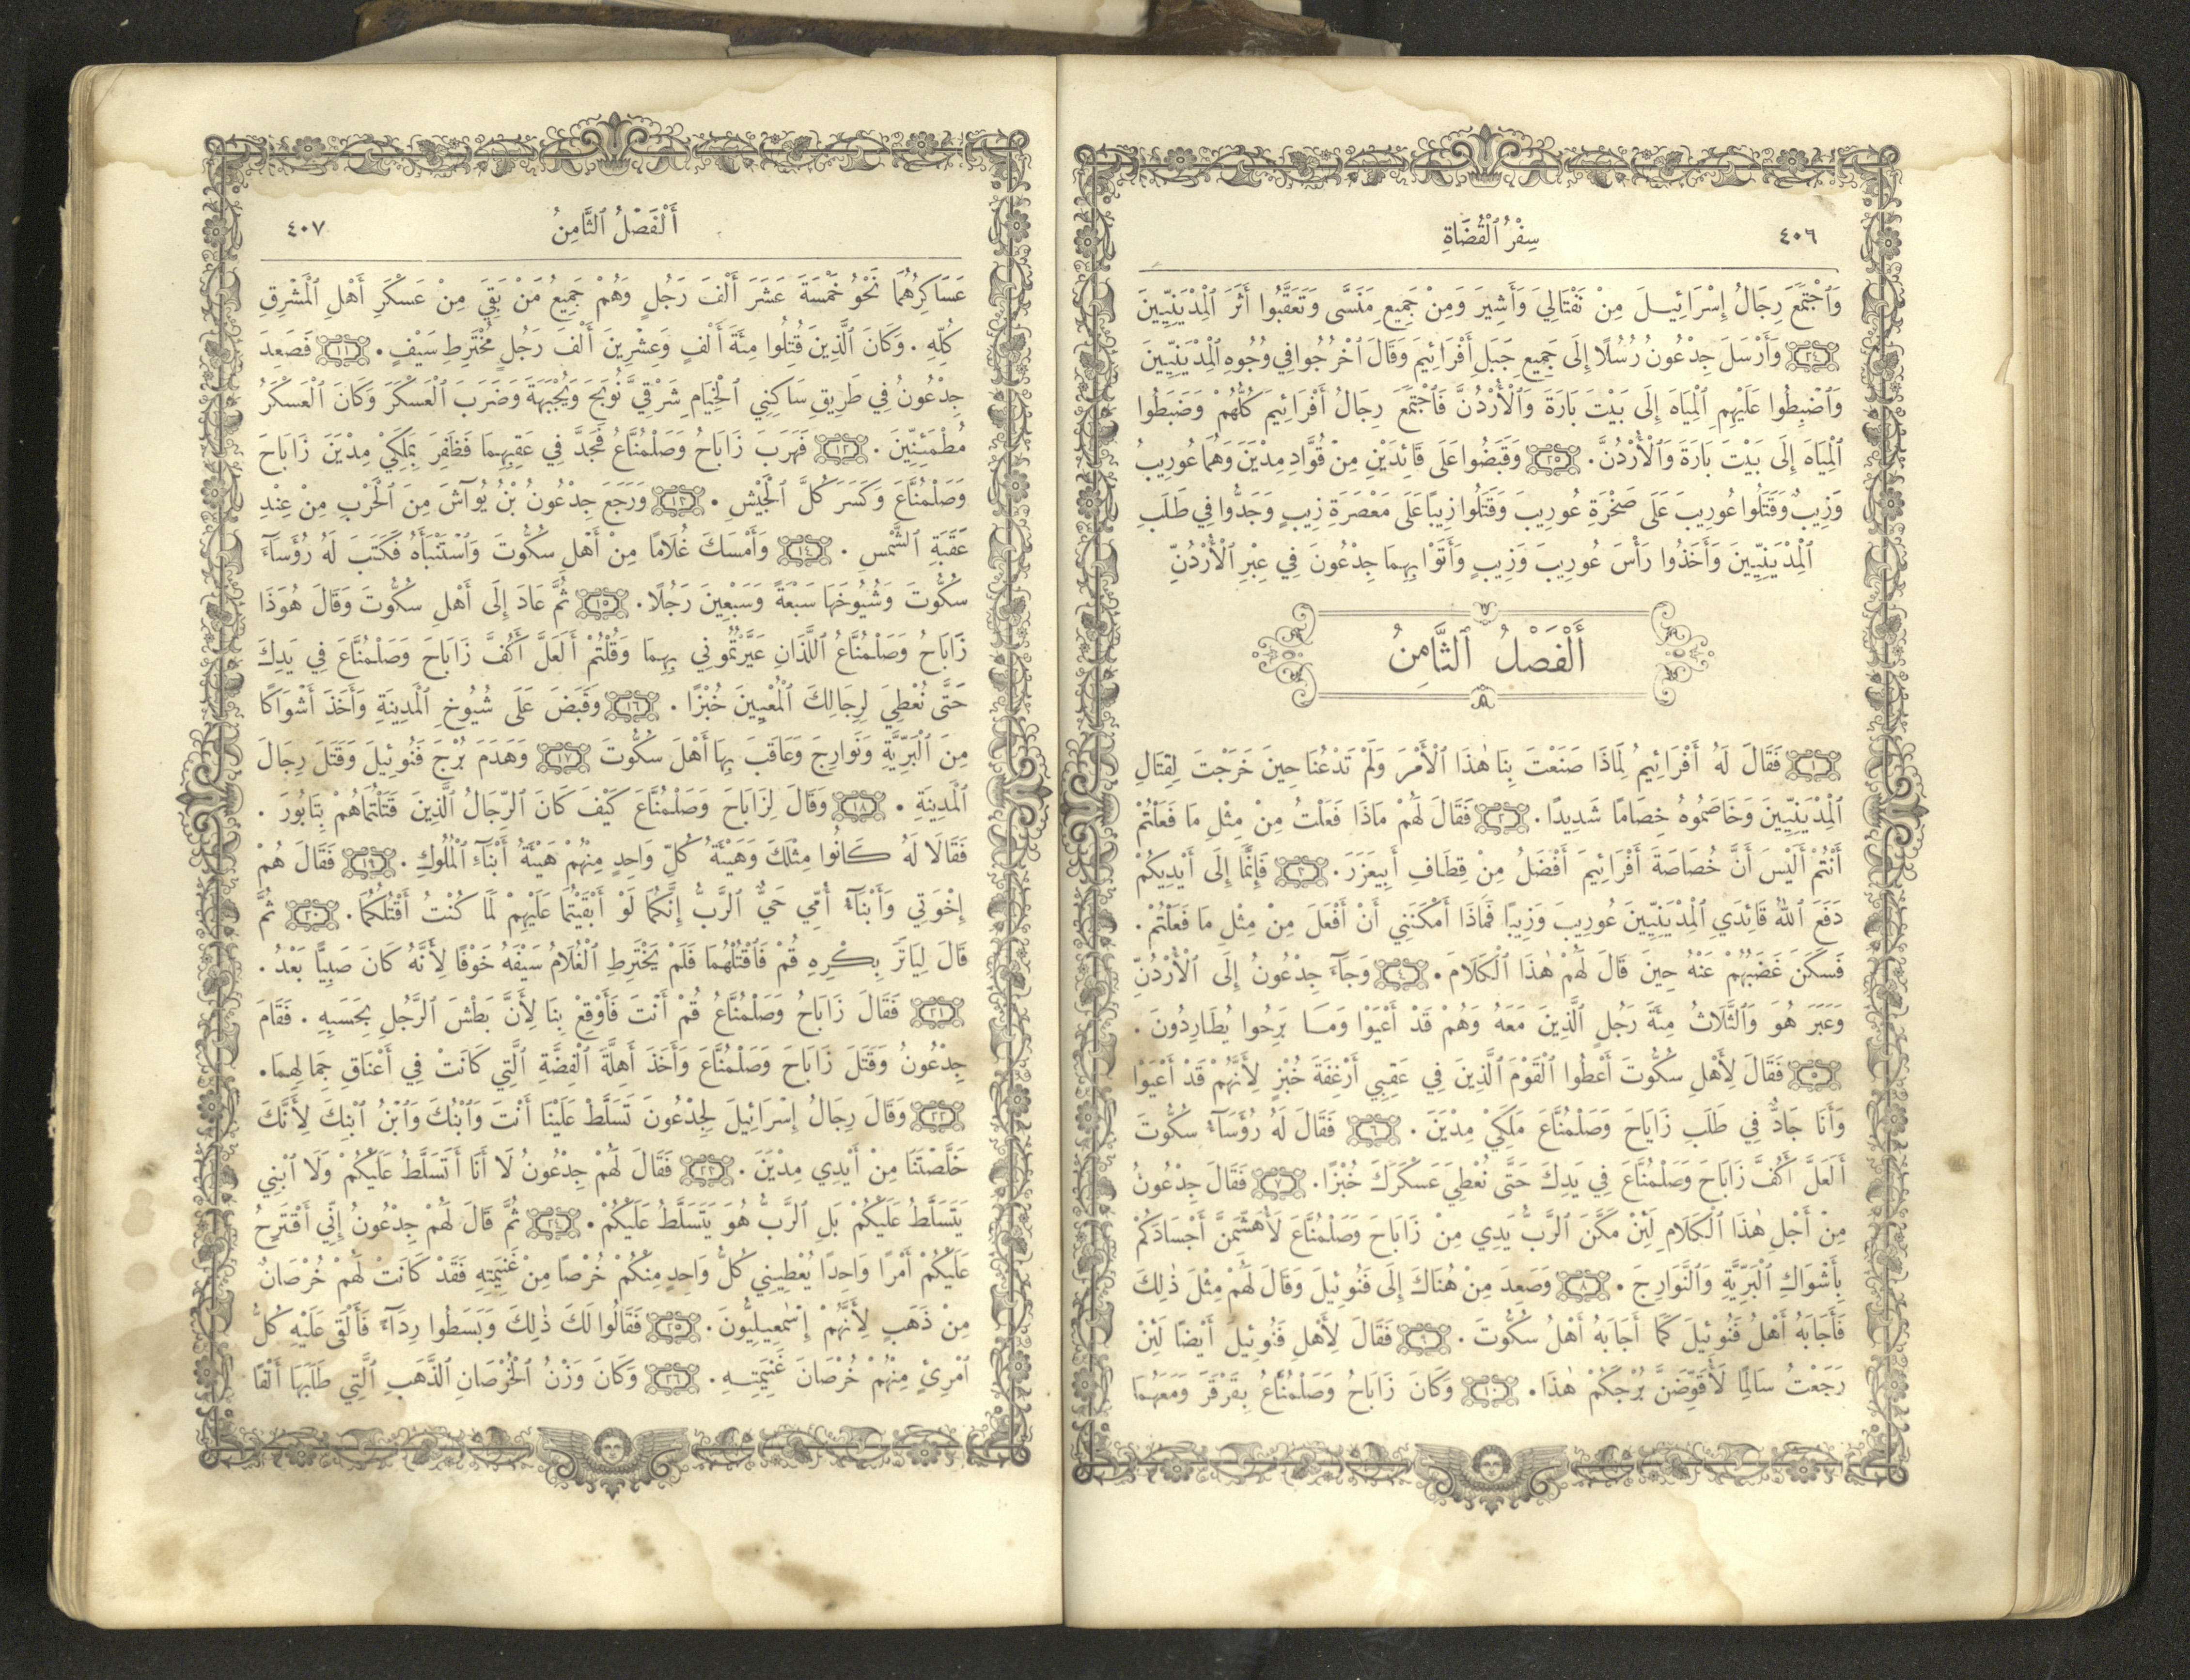 ٤٠٦
سِفْرُ ٱلْقُضَاةِ
وَٱجْتَمَعَ رِجَالُ إِسْرَائِيلَ مِنْ نَفْتَالِيَ وَأَشِيرَ وَمِنْ جَمِيعِ مَنَسَّى وَتَعَقَّبُوا أَثَرَ ٱلْمِدْيَنِيِّينَ
٢٤ وَأَرْسَلَ جِدْعُونُ رُسُلًا إِلَى جَمِيعِ جَبَلِ أَفْرَائِيمَ وَقَالَ ٱخْرُجُوا فِي وُجُوهِ ٱلْمِدْيَنِيِّينَ
وَٱضْبِطُوا عَلَيْهِمِ ٱلْمِيَاهَ إِلَى بَيْتَ بَارَةَ وَٱلْأُرْدُنَّ فَٱجْتَمَعَ رِجَالُ أَفْرَائِيمَ كُلُّهُمْ وَضَبَطُوا
ٱلْمِيَاهَ إِلَى بَيْتَ بَارَةَ وَٱلْأُرْدُنَّ. ٢٥ وَقَبَضُوا عَلَى قَائِدَيْنِ مِنْ قُوَّادِ مِدْيَنَ وَهُمَا عُورِيبُ
وَزِيبٌ وَقَتَلُوا عُورِيبَ عَلَى صَخْرَةِ عُورِيبَ وَقَتَلُوا زِيبًا عَلَى مَعْصَرَةِ زِيبٍ وَجَدُّوا فِي طَلَبِ
ٱلْمِدْيَنِيِّينَ وَأَخَذُوا رَأْسَ عُورِيبَ وَزِيبٍ وَأَتَوْا بِهِمَا جِدْعُونَ فِي عِبْرِ ٱلْأُرْدُنِّ
أَلْفَصْلُ ٱلثَّامِنُ
١ فَقَالَ لَهُ أَفْرَائِيمُ لِمَاذَا صَنَعْتَ بِنَا هٰذَا ٱلْأَمْرَ وَلَمْ تَدْعُنَا حِينَ خَرَجْتَ لِقِتَالِ
ٱلْمِدْيَنِيِّينَ وَخَاصَمُوهُ خِصَامًا شَدِيدًا. ٢ فَقَالَ لَهُمْ مَاذَا فَعَلْتُ مِنْ مِثْلِ مَا فَعَلْتُمْ
أَنْتُمْ أَلَيْسَ أَنَّ خُصَاصَةَ أَفْرَائِيمَ أَفْضَلُ مِنْ قِطَافِ أَبِيعَزَرَ. ٣ فَإِنَّمَا إِلَى أَيْدِيكُمْ
دَفَعَ ٱللهُ قَائِدَيِ ٱلْمِدْيَنِيِّينَ عُورِيبَ وَزِيبًا فَمَاذَا أَمْكَنَنِي أَنْ أَفْعَلَ مِنْ مِثْلِ مَا فَعَلْتُمْ.
فَسَكَنَ غَضَبُهُمْ عَنْهُ حِينَ قَالَ لَهُمْ هٰذَا ٱلْكَلَامَ. ٤ وَجَآءَ جِدْعُونُ إِلَى ٱلْأُرْدُنِّ
وَعَبَرَ هُوَ وَٱلثَّلَاثُ مِئَةِ رَجُلٍ ٱلَّذِينَ مَعَهُ وَهُمْ قَدْ أَعْيَوْا وَمَا بَرِحُوا يُطَارِدُونَ.
٥ فَقَالَ لِأَهْلِ سُكُّوتَ أَعْطُوا ٱلْقَوْمَ ٱلَّذِينَ فِي عَقِبِي أَرْغِفَةَ خُبْزٍ لِأَنَّهُمْ قَدْ أَعْيَوْا
وَأَنَا جَادٌّ فِي طَلَبِ زَابَاحَ وَصَلْمُنَّاعَ مَلِكَيْ مِدْيَنَ. ٦ فَقَالَ لَهُ رُؤَسَآءُ سُكُّوتَ
أَلَعَلَّ أَكُفَّ زَابَاحَ وَصَلْمُنَّاعَ فِي يَدِكَ حَتَّى نُعْطِيَ عَسْكَرَكَ خُبْزًا. ٧ فَقَالَ جِدْعُونُ
مِنْ أَجْلِ هٰذَا ٱلْكَلَامِ لَئِنْ مَكَّنَ ٱلرَّبُّ يَدِي مِنْ زَابَاحَ وَصَلْمُنَّاعَ لَأُهَشِّمَنَّ أَجْسَادَكُمْ
بِأَشْوَاكِ ٱلْبَرِّيَّةِ وَٱلنَّوَارِجَ. ٨ وَصَعِدَ مِنْ هُنَاكَ إِلَى فَنُوئِيلَ وَقَالَ لَهُمْ مِثْلَ ذٰلِكَ
فَأَجَابَهُ أَهْلُ فَنُوئِيلَ كَمَا أَجَابَهُ أَهْلُ سُكُّوتَ. ٩ فَقَالَ لِأَهْلِ فَنُوئِيلَ أَيْضًا لَئِنْ
رَجَعْتُ سَالِمًا لَأُقَوِّضَنَّ بُرْجَكُمْ هٰذَا. ١٠ وَكَانَ زَابَاحُ وَصَلْمُنَّاعُ بِقَرْقَرَ وَمَعَهُمَا
أَلْفَصْلُ ٱلثَّامِنُ
٤٠٧
عَسَاكِرُهُمَا نَحْوُ خَمْسَةَ عَشَرَ أَلْفَ رَجُلٍ وَهُمْ جَمِيعُ مَنْ بَقِيَ مِنْ عَسْكَرِ أَهْلِ ٱلْمَشْرِقِ
كُلِّهِ. وَكَانَ ٱلَّذِينَ قُتِلُوا مِئَةَ أَلْفٍ وَعِشْرِينَ أَلْفَ رَجُلٍ مُخْتَرِطِ سَيْفٍ. ١١ فَصَعِدَ
جِدْعُونُ فِي طَرِيقِ سَاكِنِي ٱلْخِيَامِ شَرْقِيَّ نُوبَحَ وَيُجْبَهَةَ وَضَرَبَ ٱلْعَسْكَرَ وَكَانَ ٱلْعَسْكَرُ
مُطْمَئِنِّينَ. ١٢ فَهَرَبَ زَابَاحُ وَصَلْمُنَّاعُ فَجَدَّ فِي عَقِبِهِمَا فَظَفِرَ بِمَلِكَيْ مِدْيَنَ زَابَاحَ
وَصَلْمُنَّاعَ وَكَسَرَ كُلَّ ٱلْجَيْشِ. ١٣ وَرَجَعَ جِدْعُونُ بْنُ يُوآشَ مِنَ ٱلْحَرْبِ مِنْ عِنْدِ
عَقَبَةِ ٱلشَّمْسِ. ١٤ وَأَمْسَكَ غُلَامًا مِنْ أَهْلِ سُكُّوتَ وَٱسْتَنْبَأَهُ فَكَتَبَ لَهُ رُؤَسَآءَ
سُكُّوتَ وَشُيُوخَهَا سَبْعَةً وَسَبْعِينَ رَجُلًا. ١٥ ثُمَّ عَادَ إِلَى أَهْلِ سُكُّوتَ وَقَالَ هُوَذَا
زَابَاحُ وَصَلْمُنَّاعُ ٱللَّذَانِ عَيَّرْتُمُونِي بِهِمَا وَقُلْتُمْ أَلَعَلَّ أَكُفَّ زَابَاحَ وَصَلْمُنَّاعَ فِي يَدِكَ
حَتَّى نُعْطِيَ لِرِجَالِكَ ٱلْمُعْيِينَ خُبْزًا. ١٦ وَقَبَضَ عَلَى شُيُوخِ ٱلْمَدِينَةِ وَأَخَذَ أَشْوَاكًا
مِنَ ٱلْبَرِّيَّةِ وَنَوَارِجَ وَعَاقَبَ بِهَا أَهْلَ سُكُّوتَ ١٧ وَهَدَمَ بُرْجَ فَنُوئِيلَ وَقَتَلَ رِجَالَ
ٱلْمَدِينَةِ. ١٨ وَقَالَ لِزَابَاحَ وَصَلْمُنَّاعَ كَيْفَ كَانَ ٱلرِّجَالُ ٱلَّذِينَ قَتَلْتُمَاهُمْ بِتَابُورَ.
فَقَالَا لَهُ كَانُوا مِثْلَكَ وَهَيْئَةُ كُلِّ وَاحِدٍ مِنْهُمْ هَيْئَةُ أَبْنَآءِ ٱلْمُلُوكِ. ١٩ فَقَالَ هُمْ
إِخْوَتِي وَأَبْنَآءُ أُمِّي حَيٌّ ٱلرَّبُّ إِنَّكُمَا لَوْ أَبْقَيْتُمَا عَلَيْهِمْ لَمَا كُنْتُ أَقْتُلُكُمَا. ٢٠ ثُمَّ
قَالَ لِيَاتَرَ بِكْرِهِ قُمْ فَٱقْتُلْهُمَا فَلَمْ يَخْتَرِطِ ٱلْغُلَامُ سَيْفَهُ خَوْفًا لِأَنَّهُ كَانَ صَبِيًّا بَعْدُ.
٢١ فَقَالَ زَابَاحُ وَصَلْمُنَّاعُ قُمْ أَنْتَ فَأَوْقِعْ بِنَا لِأَنَّ بَطْشَ ٱلرَّجُلِ بِحَسَبِهِ. فَقَامَ
جِدْعُونُ وَقَتَلَ زَابَاحَ وَصَلْمُنَّاعَ وَأَخَذَ أَهِلَّةَ ٱلْفِضَّةِ ٱلَّتِي كَانَتْ فِي أَعْنَاقِ جِمَالِهِمَا.
٢٢ وَقَالَ رِجَالُ إِسْرَائِيلَ لِجِدْعُونَ تَسَلَّطْ عَلَيْنَا أَنْتَ وَٱبْنُكَ وَٱبْنُ ٱبْنِكَ لِأَنَّكَ
خَلَّصْتَنَا مِنْ أَيْدِي مِدْيَنَ. ٢٣ فَقَالَ لَهُمْ جِدْعُونُ لَا أَنَا أَتَسَلَّطُ عَلَيْكُمْ وَلَا ٱبْنِي
يَتَسَلَّطُ عَلَيْكُمْ بَلِ ٱلرَّبُّ هُوَ يَتَسَلَّطُ عَلَيْكُمْ. ٢٤ ثُمَّ قَالَ لَهُمْ جِدْعُونُ إِنِّي أَقْتَرِحُ
عَلَيْكُمْ أَمْرًا وَاحِدًا يُعْطِينِي كُلُّ وَاحِدٍ مِنْكُمْ خُرْصًا مِنْ غَنِيمَتِهِ فَقَدْ كَانَتْ لَهُمْ خُرْصَانٌ
مِنْ ذَهَبٍ لِأَنَّهُمْ إِسْمٰعِيلِيُّونَ. ٢٥ فَقَالُوا لَكَ ذٰلِكَ وَبَسَطُوا رِدَآءً فَأَلْقَى عَلَيْهِ كُلُّ
ٱمْرِئٍ مِنْهُمْ خُرْصَانَ غَنِيمَتِهِ. ٢٦ وَكَانَ وَزْنُ ٱلْخُرْصَانِ ٱلذَّهَبِ ٱلَّتِي طَلَبَهَا أَلْفًا